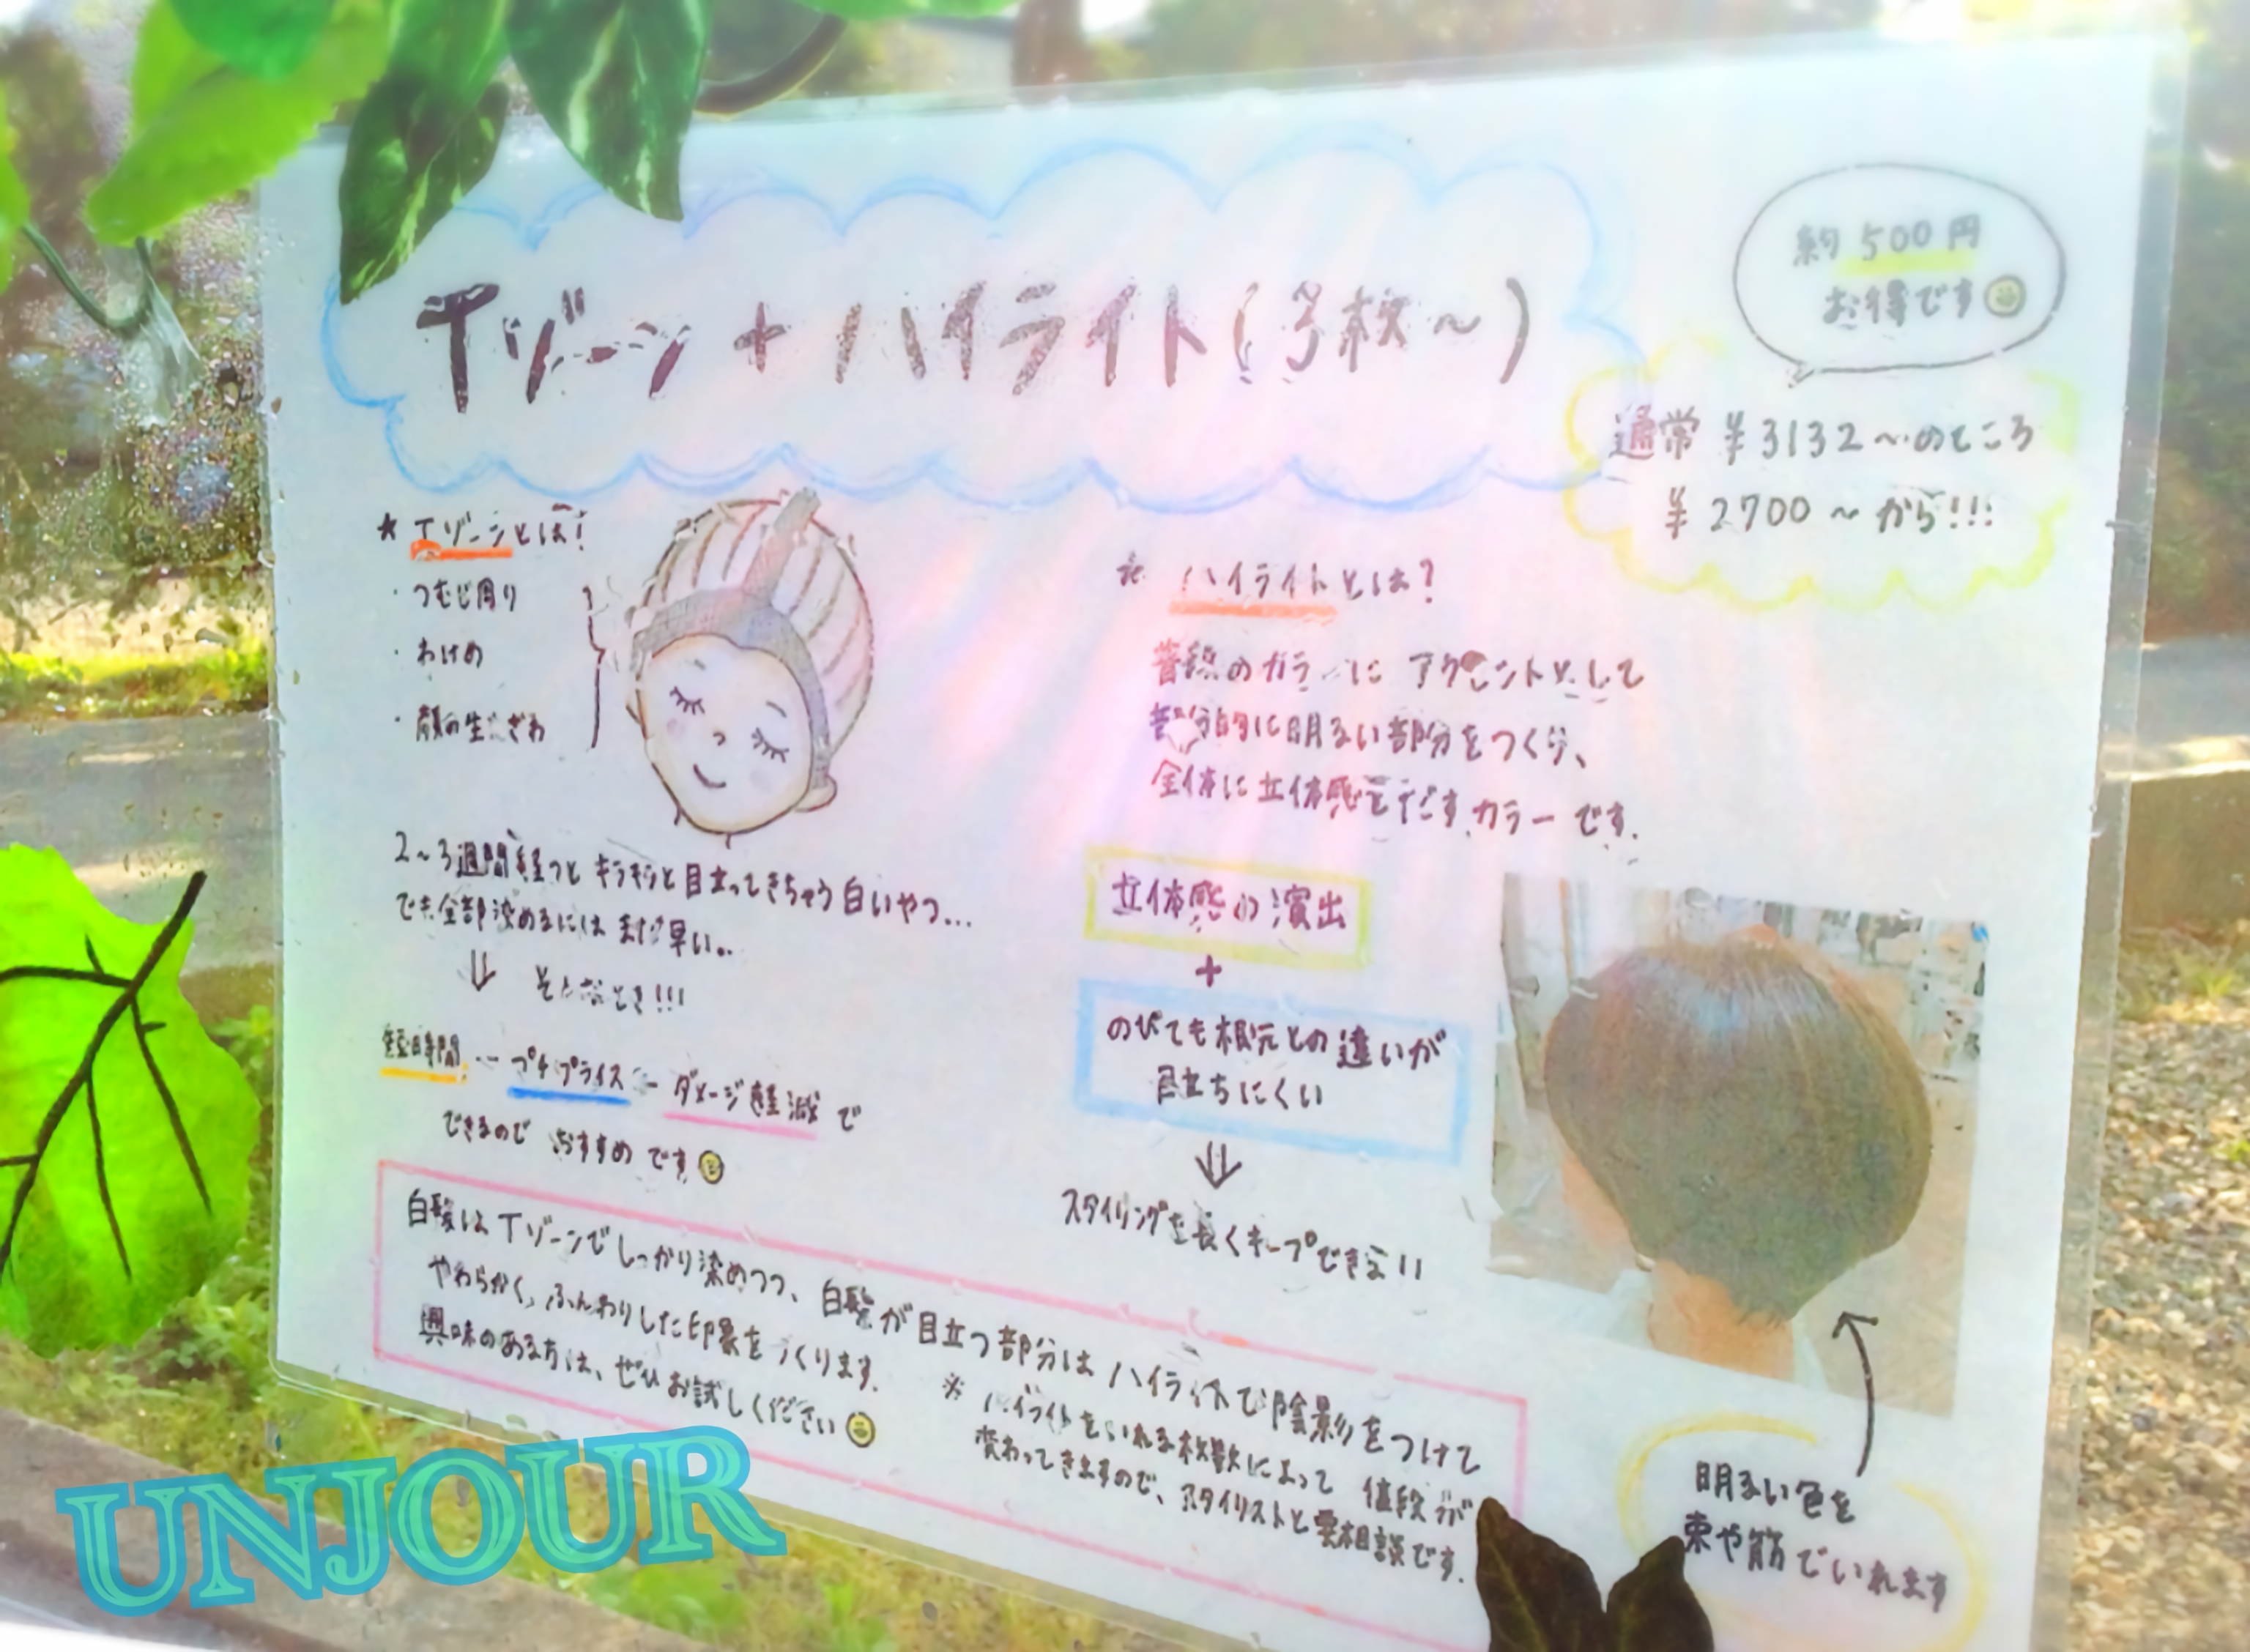 Tゾーン + ハイライト(3枚～)
約500円
お得です
通常 ¥3132～のところ
¥2700～から!!!
★ Tゾーンとは!
・つむじ周り
・わけめ
・顔の生えぎわ
2～3週間経つと キラキラと目立ってきちゃう白いやつ...
でも全部染めるには まだ早い..
⇓ そんなとき!!!
短時間 プチプライス ダメージ軽減で
できるので おすすめです
ハイライトとは?
普段のカラーに アクセントとして
部分的に明るい部分をつくり、
全体に立体感をだすカラーです.
立体感の演出
+
のびても根元との違いが
目立ちにくい
⇓
スタイリングを長くキープできる!!
白髪は Tゾーンでしっかり染めつつ、白髪が目立つ部分は ハイライトで陰影をつけて
やわらかく、ふんわりした印象をつくります.
興味のある方は、ぜひお試しください
※ ハイライトをいれる枚数によって 値段が
変わってきますので、スタイリストと要相談です.
明るい色を
束や筋でいれます
UNJOUR